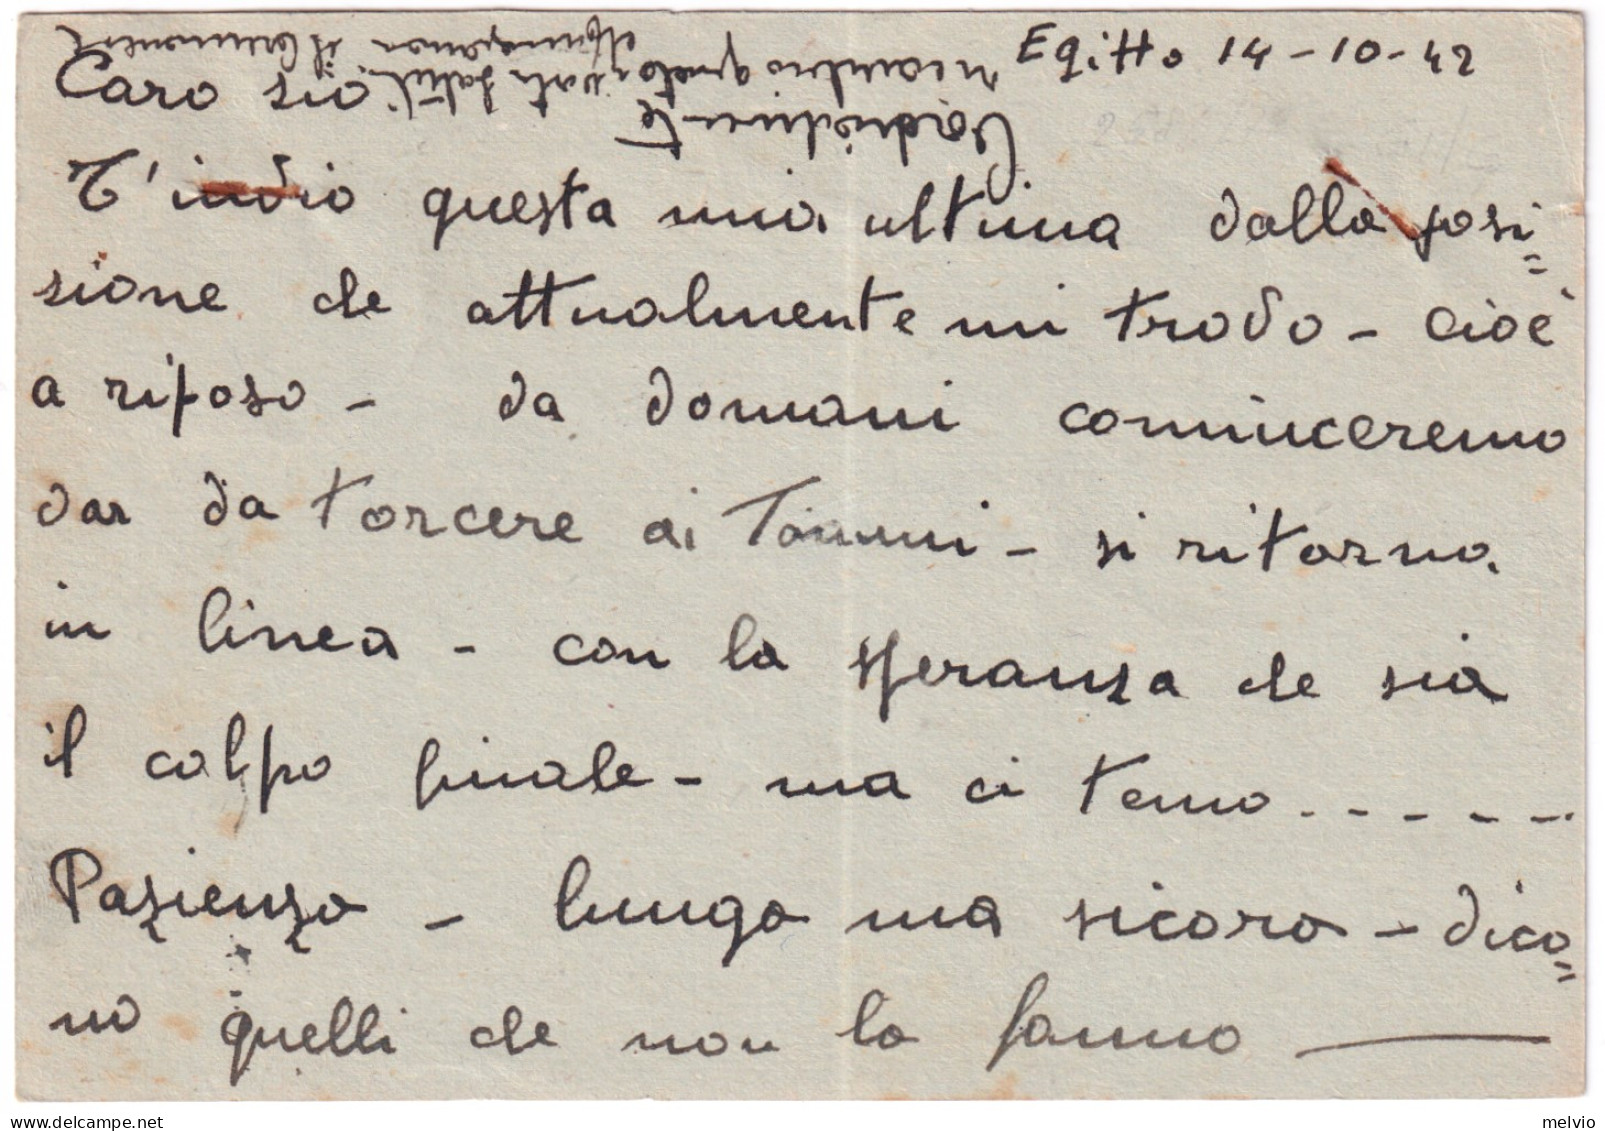 Egitto 14-10-42
Caro zio
T'invio questa mia ultima dalla posi=
zione che attualmente mi trovo - cioè
a riposo - da domani cominceremo
dar da torcere ai Tommi - si ritorna
in linea - con la speranza che sia
il colpo finale - ma ci temo......
Pazienza - lunga ma sicora - dico=
no quelli che non la fanno
Cordialmente
ricambio
melvio